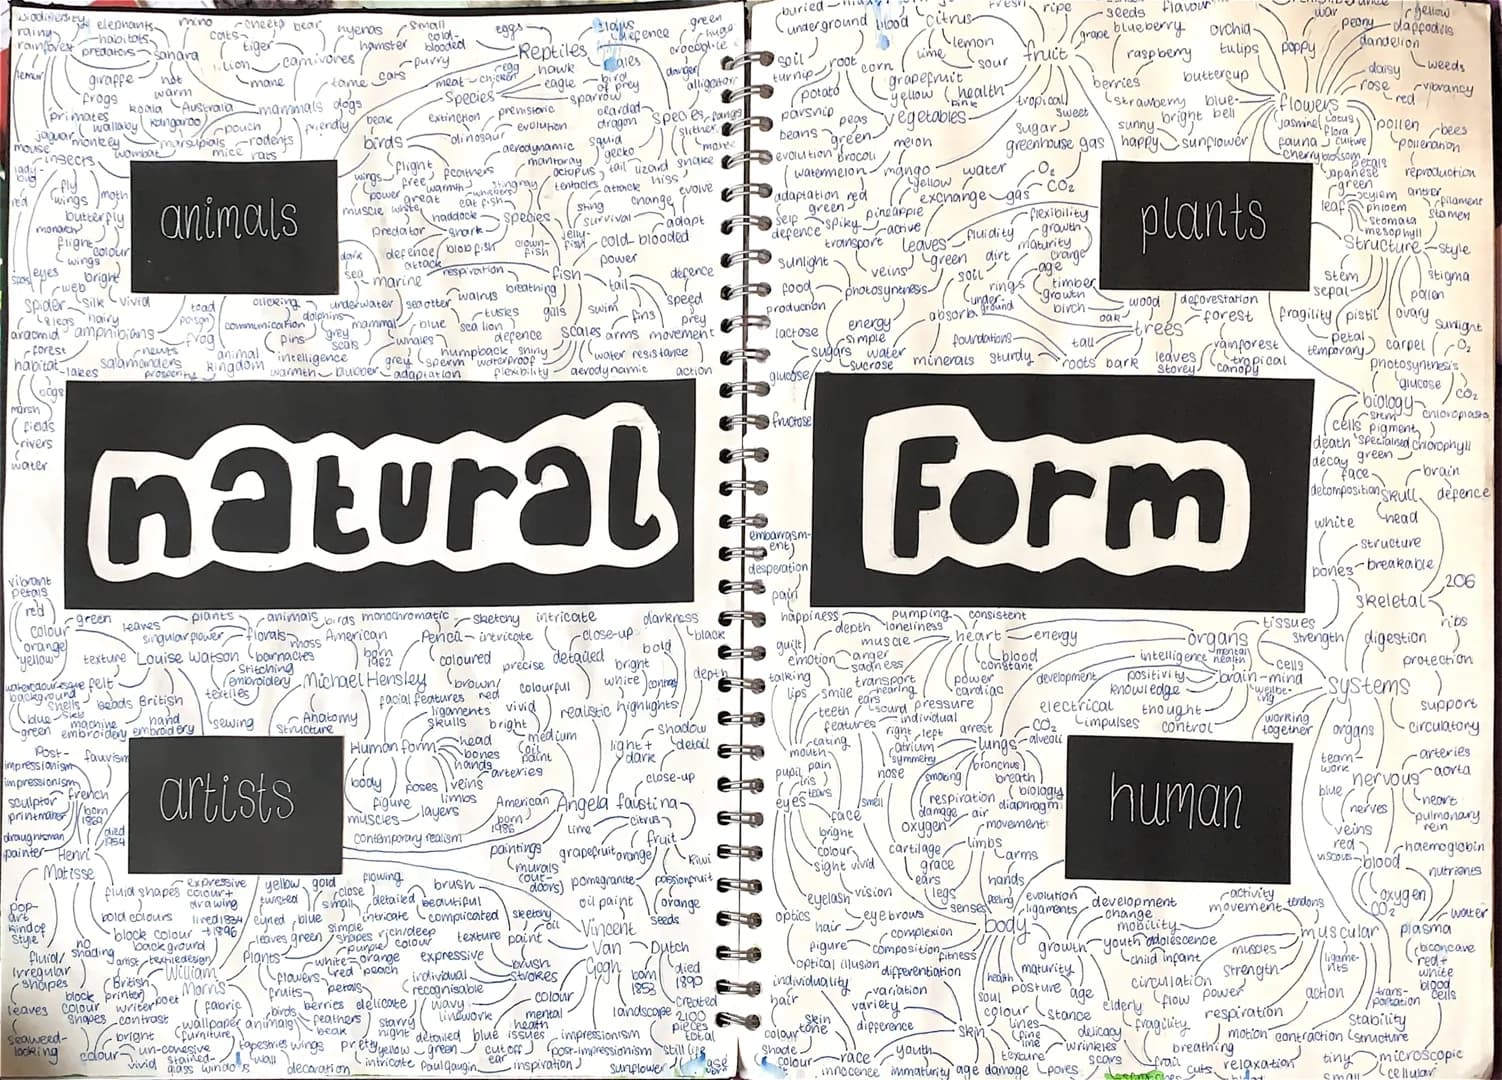 biodiversity elephants rhino cheeta bear hyenas small eggs green
rainy habitats cats hamster cold-blooded Reptiles defence huge
rainforest predators sahara tiger carnivores purry crocodile
lemur giraffe hot lion tame cats meat egg chicken hawk bird of prey danger
frogs warm mane species eagle sparrow alligator
primates koala Australia mammals dogs extinction prehistoric bearded dragon species fangs
jaguar monkey wallaby kangaroo pouch friendly beak evolution squid slither
mouse wombat marsupials rodents birds dinosaur aerodynamic gecko
insects mice rats mantaray octopus tail lizard snake
lady-bug fly wings moth wings flight feathers stingray tentacles attack hiss evolve
red butterfly power free warmth whiskers sting change
monarch muscle great white cat fish survival adapt
flight colour predator haddock shark species jelly-fish cold-blooded
wings dark defence attack blob fish clown-fish power
eyes web bright sea marine respiration fish tail defence
spider silk vivid toad clicking underwater sea otter walrus breathing speed
8 legs hairy poison dolphins tusks gills swim fins prey
arachnid amphibians frog communication fins grey scals mammal whales blue sea lion defence scales arms movement
forest newts animal kingdom intelligence humpback shiny water resistance
habitat lakes salamanders prosperity warmth blubber grey adaptation sperm waterproof flexibility aerodynamic action
bogs
marsh
fields
rivers
water
animals
natural
vibrant petals
red green leaves plants animals birds monochromatic sketchy intricate darkness
colour singular flower florals moss American Pencil intricate close-up black
orange yellow texture Louise Watson barnacles born 1962 coloured precise detailed bold
watercolouresque background felt stitching embroidery Michael Hensley brown/red colourful bright white contrast depth
shells beads British textiles facial features vivid realistic highlights
blue green machine embroidery hand embroidery sewing Anatomy structure ligaments skulls bright medium oil paint shadow
Post-impressionism fauvism Human form head bones hands light + dark detail
sculptor french body poses veins arteries close-up
printmaker born 1869 figure limbs American Angela faustina
draughtsman died 1954 muscles layers born 1986 lime citrus
painter Henri Matisse contemporary realism paintings grapefruit orange fruit kiwi
artists
fluid shapes expressive colour + drawing yellow gold flowing brush murals (out-doors) pomegranate passionfruit
pop-art kind of style bold colours lived 1834 → 1896 twisted small close detailed beautiful oil paint orange seeds
block colour background vined blue simple shapes intricate complicated sketchy oil Vincent Van Gogh
no shading artist textile design leaves green rich/deep colour texture paint Dutch
fluid/irregular shapes British William Morris plants white orange purple expressive brush strokes born 1853 died 1890
block printer poet flowers red peach individual recognisable colour
leaves colour shapes writer fabric fruits petals wavy linework landscape created 2100 pieces total
seaweed-looking contrast wallpaper furniture animals birds berries feathers beak delicate starry night mental health issues impressionism
bright tapestries wings pretty detailed blue post-impressionism still life
colour un-cohesive stained-glass windows wall yellow green cut off ear
vivid decoration intricate paul gaugin inspiration sunflower
buried underground blood citrus fresh ripe seeds flavour war peony yellow daffodils
soil root lemon fruit grape blueberry orchid poppy dandelion
turnip corn lime sour raspberry tulips weeds
potato grapefruit health berries buttercup daisy vibrancy
parsnip yellow pink tropical strawberry blue-bell flowers rose red
beans peas vegetables sweet sunny bright jasmine lotus flora pollen bees
green sugar happy sunflower fauna culture pollenation
evolution brocoli melon greenhouse gas cherry blossom petals
watermelon mango water O₂ CO₂ japanese reproduction
adaptation red green yellow exchange gas green leaf xylem anther filament
self defence spiky pineapple flexibility growth phloem stamen
transport active leaves fluidity maturity stomata mesophyll
sunlight veins green dirt orange age structure style
food production photosynthesis soil rings timber growth stem stigma
underground birch wood deforestation sepal pollen
lactose energy simple absorb oak trees forest fragility pistil ovary
sugars water sucrose foundations tall rainforest petal temporary carpel sunlight O₂
glucose minerals sturdy roots bark leaves storey tropical canopy photosynthesis
fructose glucose CO₂
plants
biology chloroplasts
stem cells pigment
death specialised chlorophyll
decay green
face brain
decomposition skull defence
white head
structure
bones breakable
skeletal 206
form
embarrasment
desperation
pain
happiness depth loneliness pumping consistent tissues ribs
guilt muscle heart energy organs strength digestion
emotion anger sadness blood constant intelligence mental health cells protection
talking transport power development positivity brain mind systems
lips smile hearing ears cardiac knowledge well-being support
teeth sound pressure electrical thought working together circulatory
features individual arrest CO₂ impulses control organs
eating mouth right left atrium symmetry lungs alveoli team-work arteries
pain bronchus nervous aorta
pupil iris tears nose smoking breath blue heart
eyes smell respiration biology diaphragm nerves pulmonary vein
face damage air veins
bright oxygen movement red haemoglobin
colour cartilage limbs viscous blood
sight vivid grace arms nutrients
ears hands
human
eyelash vision legs feeling evolution development activity tendons oxygen CO₂
optics eyebrows senses ligaments change movement water
hair complexion body mobility muscular plasma
figure composition growth youth adolescence muscles ligaments biconcave red + white blood cells
optical illusion fitness child infant strength
individuality differentiation health maturity circulation action transportation
hair variation posture age flow power
variety soul elderly respiration stability
skin tone difference skin colour stance fragility motion contraction structure
colour lines fine line delicacy breathing
shade race youth texture wrinkles scars frail relaxation tiny microscopic
colour innocence immaturity age damage pores cuts small cellular